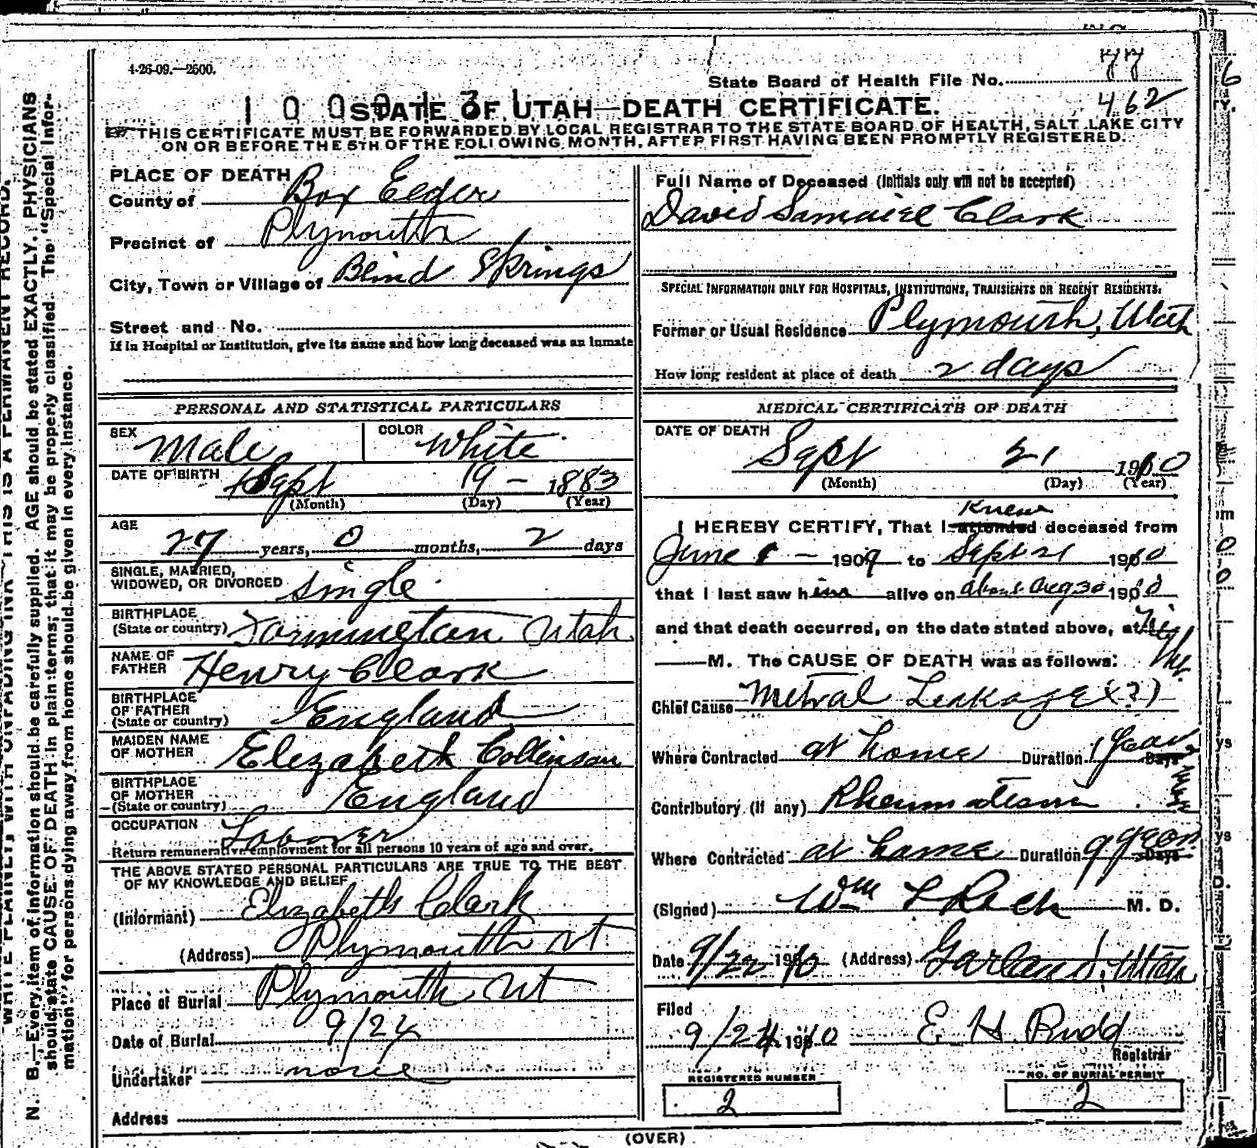 4-26-09.—2500.
State Board of Health File No. 77
462
STATE OF UTAH—DEATH CERTIFICATE.
THIS CERTIFICATE MUST BE FORWARDED BY LOCAL REGISTRAR TO THE STATE BOARD OF HEALTH, SALT LAKE CITY
ON OR BEFORE THE 5TH OF THE FOLLOWING MONTH, AFTER FIRST HAVING BEEN PROMPTLY REGISTERED.
PLACE OF DEATH
County of Box Elder
Precinct of Plymouth
City, Town or Village of Blind Springs
Street and No.
If in Hospital or Institution, give its name and how long deceased was an inmate
PERSONAL AND STATISTICAL PARTICULARS
SEX Male COLOR White
DATE OF BIRTH Sept 19 - 1883
(Month) (Day) (Year)
AGE
27 years, 0 months, 2 days
SINGLE, MARRIED,
WIDOWED, OR DIVORCED single
BIRTHPLACE
(State or country) Farmington Utah
NAME OF
FATHER Henry Clark
BIRTHPLACE
OF FATHER
(State or country) England
MAIDEN NAME
OF MOTHER Elezabeth Collinson
BIRTHPLACE
OF MOTHER
(State or country) England
OCCUPATION Laborer
Return remunerative employment for all persons 10 years of age and over.
THE ABOVE STATED PERSONAL PARTICULARS ARE TRUE TO THE BEST
OF MY KNOWLEDGE AND BELIEF
(Informant) Elizabeth Clark
(Address) Plymouth Ut
Place of Burial Plymouth Ut
Date of Burial 9/24
Undertaker none
Address
Full Name of Deceased (Initials only will not be accepted)
David Samuiel Clark
SPECIAL INFORMATION ONLY FOR HOSPITALS, INSTITUTIONS, TRANSIENTS OR RECENT RESIDENTS:
Former or Usual Residence Plymouth, Utah
How long resident at place of death 2 days
MEDICAL CERTIFICATE OF DEATH
DATE OF DEATH
Sept 21 1910
(Month) (Day) (Year)
Knew
I HEREBY CERTIFY, That I attended deceased from
June 1 - 1909 to Sept 21 1910
that I last saw him alive on about Aug 30 1910
and that death occurred, on the date stated above, at
M. The CAUSE OF DEATH was as follows:
Chief Cause Metral Leakage (?)
Where Contracted at home Duration 1 year Days
Contributory (if any) Rheumatism
Where Contracted at home Duration 9 years Days
(Signed) Wm L Rich M. D.
Date 9/22 1910 (Address) Garland, Utah
Filed
9/24 1910 E H Rudd
Registrar
REGISTERED NUMBER NO. OF BURIAL PERMIT
2 2
(OVER)
N. B.—Every item of information should be carefully supplied. AGE should be stated EXACTLY. PHYSICIANS
should state CAUSE OF DEATH in plain terms, that it may be properly classified. The "Special Infor-
mation" for persons dying away from home should be given in every instance.